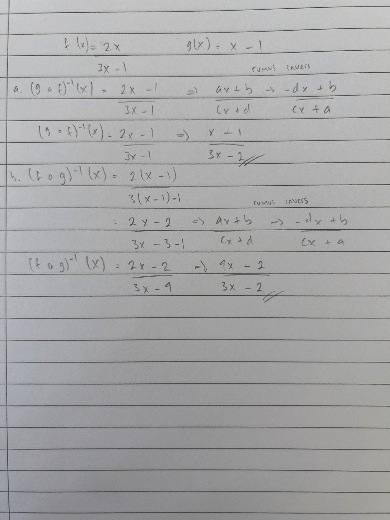 f(x) = 2x / 3x - 1    g(x) = x - 1
rumus invers
a. (g o f)⁻¹(x) = 2x - 1 / 3x - 1 ⇒ ax + b / cx + d → -dx + b / cx + a
(g o f)⁻¹(x) = 2x - 1 / 3x - 1 ⇒ x - 1 / 3x - 2 //
b. (f o g)⁻¹(x) = 2(x - 1) / 3(x - 1) - 1
rumus invers
= 2x - 2 / 3x - 3 - 1 ⇒ ax + b / cx + d → -dx + b / cx + a
(f o g)⁻¹(x) = 2x - 2 / 3x - 4 → 4x - 2 / 3x - 2 //